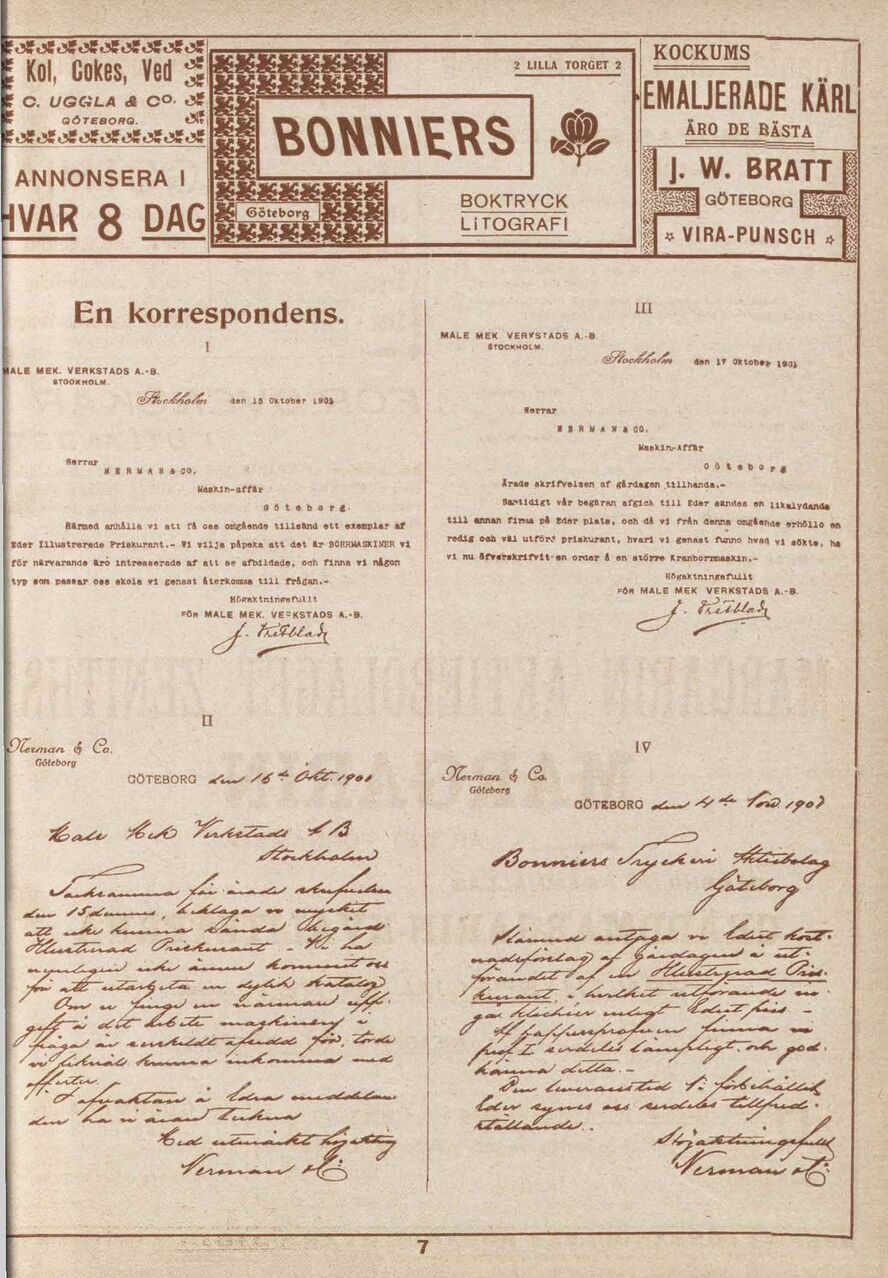 Kol, Cokes, Ved
C. UGGLA & CO.
GÖTEBORG.
ANNONSERA I
HVAR 8 DAG
2 LILLA TORGET 2
BONNIERS
Göteborg
BOKTRYCK
LITOGRAFI
KOCKUMS
EMALJERADE KÄRL
ÄRO DE BÄSTA
J. W. BRATT
GÖTEBORG
VIRA-PUNSCH
En korrespondens.
I
MALE MEK. VERKSTADS A.-B.
STOCKHOLM.
Stockholm den 15 Oktober 1901
Herrar
NERMAN & CO.
Maskin-affär
Göteborg.
Härmed anhålla vi att få oss omgående tillsänd ett exemplar af
Eder Illustrerade Priskurant.- Vi vilja påpeka att det är BORRMASKINER vi
för närvarande äro intresserade af att se afbildade, och finna vi någon
typ som passar oss skola vi genast återkomma till frågan.-
Högaktningsfullt
FÖR MALE MEK. VERKSTADS A.-B.
J. Fretblad
II
Nerman & Co.
Göteborg
GÖTEBORG den 16de Okt. 1901
Male Mek Verkstads A B
Stockholm
Tacksamma för ärade skrifvelsen
den 15 dennes, beklaga vi mycket
att icke kunna sända begärd
Illustrerad Priskurant - Vi ha
nemligen icke ännu kommit oss
för att utarbeta en dylik katalog
Om vi finge en närmare upp-
gift å det arbete maskinen i
fråga är särskildt afsedd för, torde
vi likväl kunna inkomma med
offerter.
I afvaktan å Edra meddelan
den ha vi äran teckna
Med utmärkt högaktning
Nerman & Co:
III
MALE MEK VERKSTADS A.-B
STOCKHOLM.
Stockholm den 17 Oktober 1901
Herrar
NERMAN & CO.
Maskin-Affär
Göteborg
Ärade skrifvelsen af gårdagen tillhanda.-
Samtidigt vår begäran afgick till Eder sändes en likalydande
till annan firma på Eder plats, och då vi från denna omgående erhöllo en
redig och väl utförd priskurant, hvari vi genast funno hvad vi sökte, ha
vi nu öfverskrifvit en order å en större Kranborrmaskin.-
Högaktningsfullt
FÖR MALE MEK VERKSTADS A.-B.
J. Fretblad
IV
Nerman & Co.
Göteborg
GÖTEBORG den 4de Nov 1901
Bonniers Tryckeri Aktiebolag
Göteborg
Härmed antaga vi Edert kost-
nadsförslag af gårdagen å ut-
förandet af en Illustrerad Pris-
kurant, i hvilket utförande in-
gå klichéer enligt Edert pris -
Af pappersprofven finna vi
prof I serdeles lämpligt, och god-
känna detta. -
Den leveranstid Ni förbehållit
Eder synes oss serdeles tillfred-
ställande.-
Högaktningsfullt
Nerman & Co:
7